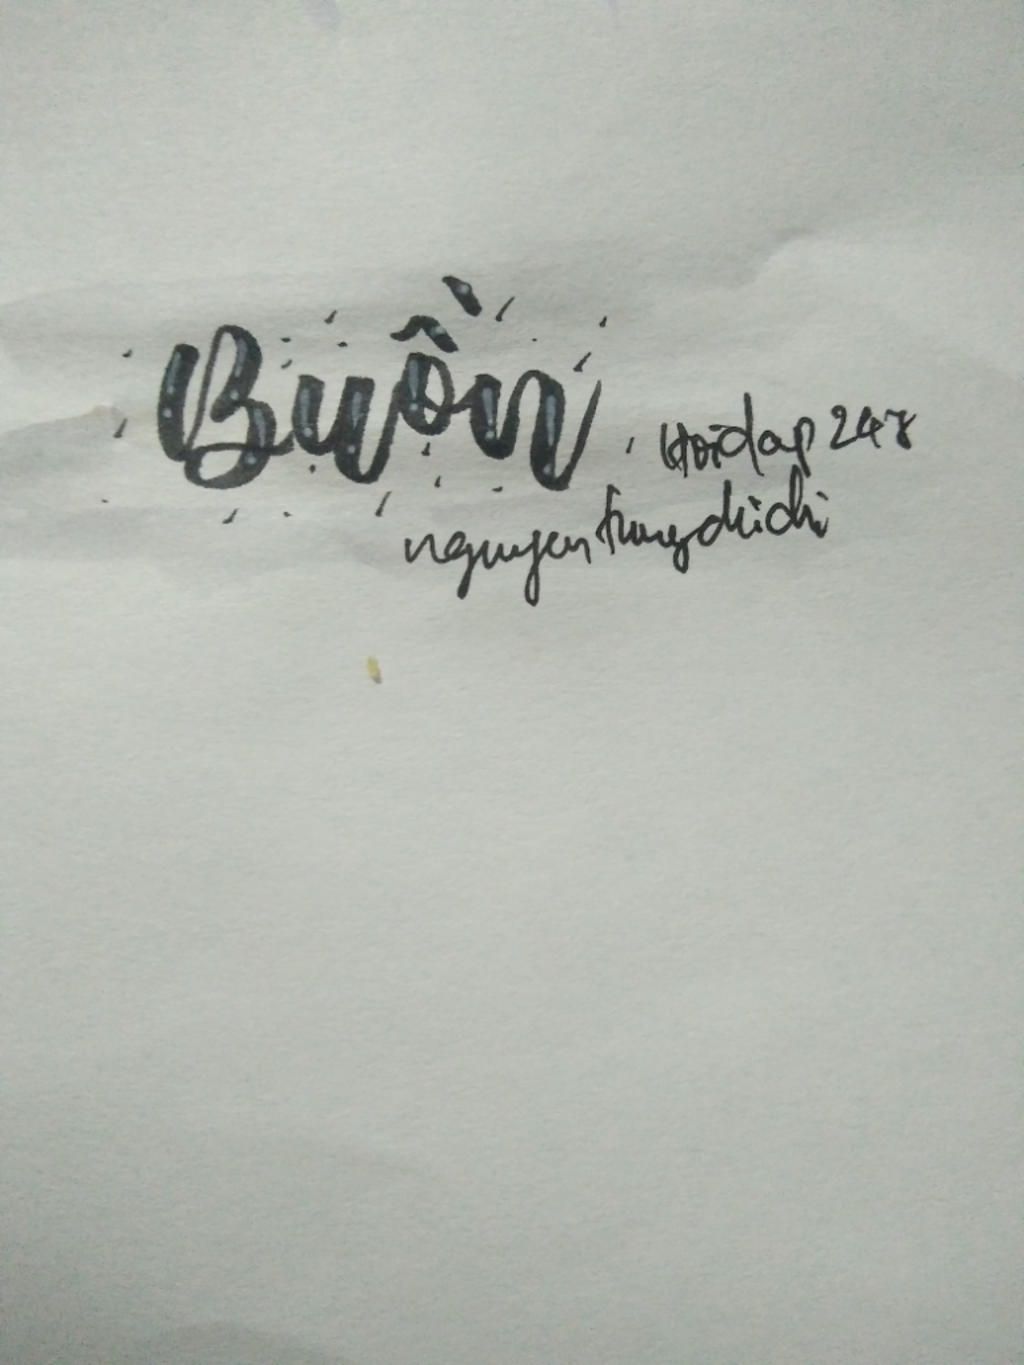 Buồn
Hoidap 247
nguyentrungdichi